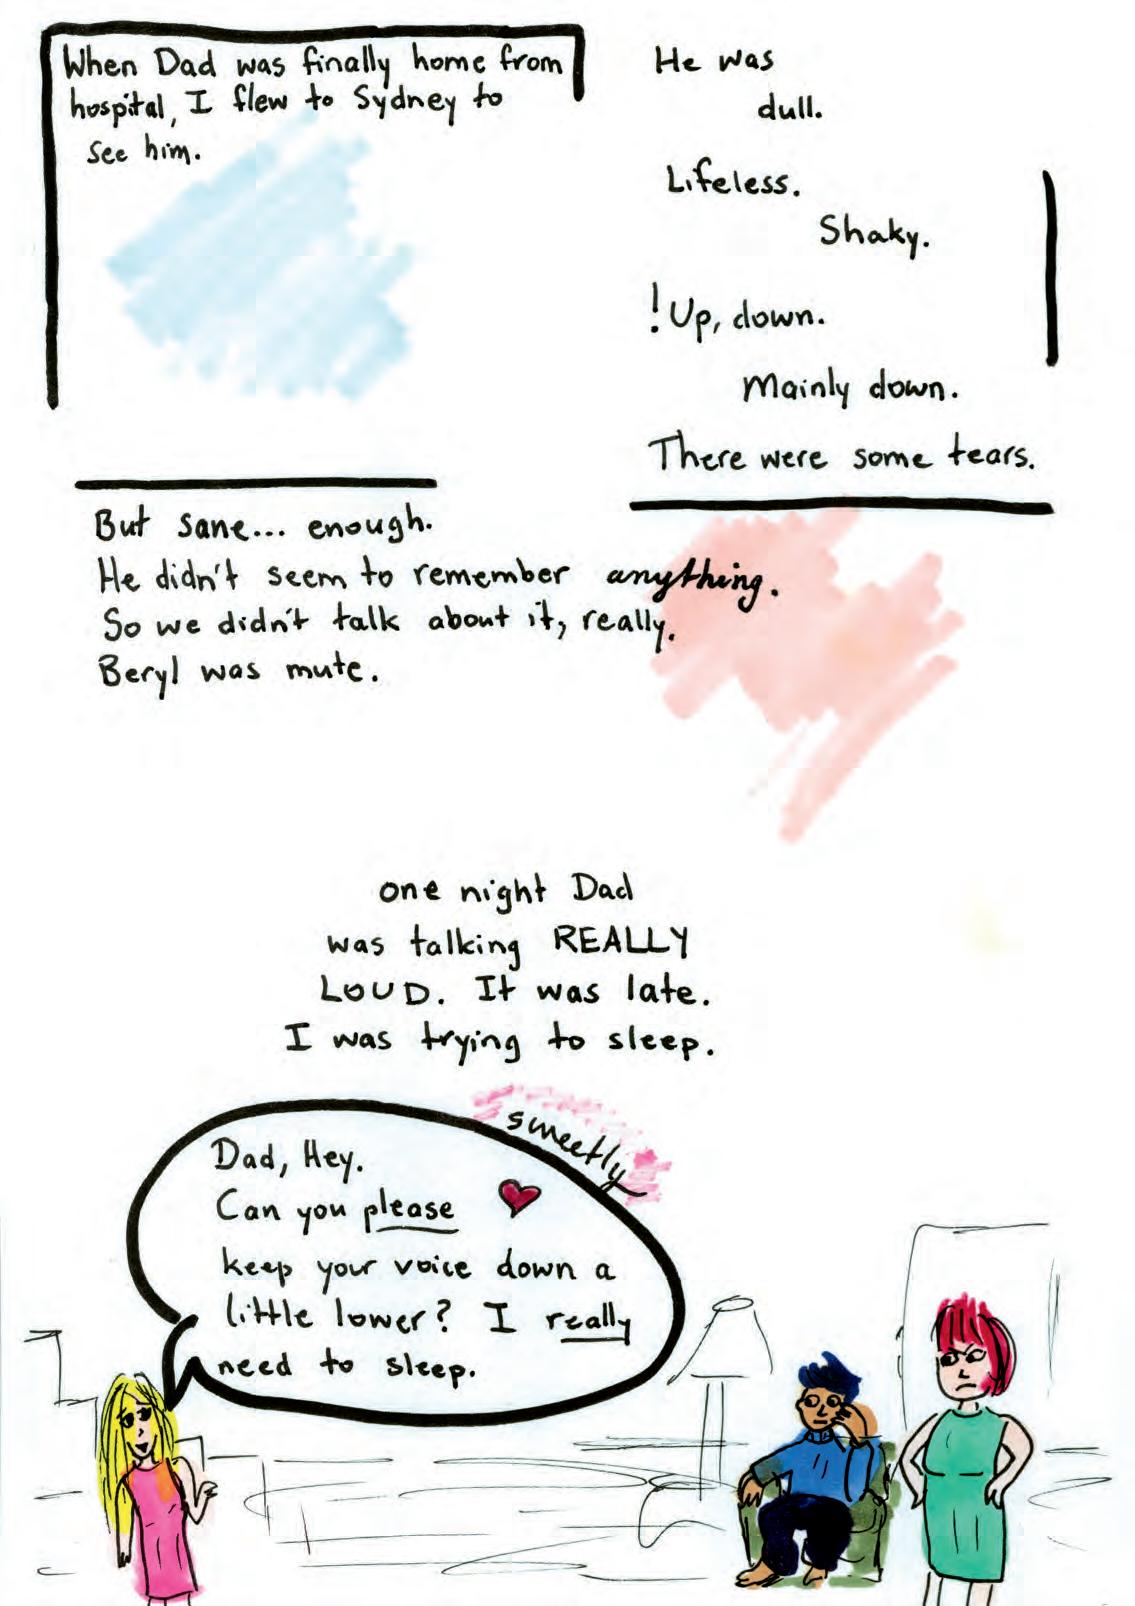 When Dad was finally home from
hospital, I flew to Sydney to
see him.
He was
dull.
Lifeless.
Shaky.
! Up, down.
Mainly down.
There were some tears.
But sane... enough.
He didn't seem to remember anything.
So we didn't talk about it, really.
Beryl was mute.
one night Dad
was talking REALLY
LOUD. It was late.
I was trying to sleep.
sweetly
Dad, Hey.
Can you please
keep your voice down a
little lower? I really
need to sleep.